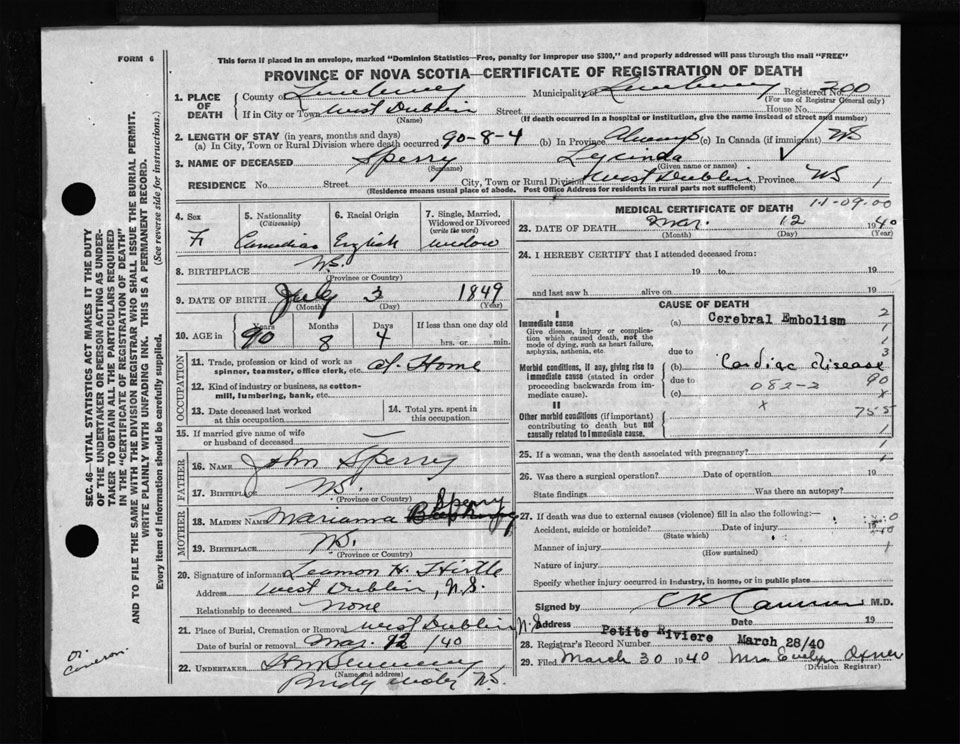 FORM 6
This form if placed in an envelope, marked "Dominion Statistics—Free, penalty for improper use $300," and properly addressed will pass through the mail "FREE"
PROVINCE OF NOVA SCOTIA—CERTIFICATE OF REGISTRATION OF DEATH
1. PLACE OF DEATH County of Lunenburg Municipality of Lunenburg Registered No. 300
(For use of Registrar General only)
If in City or Town West Dublin Street House No.
(Name) (If death occurred in a hospital or institution, give the name instead of street and number)
2. LENGTH OF STAY (in years, months and days)
(a) In City, Town or Rural Division where death occurred 90-8-4 (b) In Province Always (c) In Canada (if immigrant) NS
3. NAME OF DECEASED Sperry Lycinda
(Surname) (Given name or names)
RESIDENCE No. Street City, Town or Rural Division West Dublin Province NS 1
(Residence means usual place of abode. Post Office Address for residents in rural parts not sufficient)
4. Sex F
5. Nationality (Citizenship) Canadian
6. Racial Origin English
7. Single, Married, Widowed or Divorced (write the word) widow
8. BIRTHPLACE N.S.
(Province or Country)
9. DATE OF BIRTH July 3 1849
(Month) (Day) (Year)
10. AGE in Years 90 Months 8 Days 4 If less than one day old
hrs. or min.
OCCUPATION
11. Trade, profession or kind of work as spinner, teamster, office clerk, etc. at Home
12. Kind of industry or business, as cotton-mill, lumbering, bank, etc.
13. Date deceased last worked at this occupation
14. Total yrs. spent in this occupation
15. If married give name of wife or husband of deceased —
FATHER
16. NAME John Sperry
17. BIRTHPLACE NS.
(Province or Country)
MOTHER
18. MAIDEN NAME Marianna Sperry
19. BIRTHPLACE N.S.
(Province or Country)
20. Signature of informant Leamon H. Hirtle
Address West Dublin, N.S.
Relationship to deceased none
21. Place of Burial, Cremation or Removal West Dublin N.S.
Date of burial or removal Mar. 12/40
22. UNDERTAKER
(Name and address)
MEDICAL CERTIFICATE OF DEATH 1-1-09-00
23. DATE OF DEATH Mar. 12 1940
(Month) (Day) (Year)
24. I HEREBY CERTIFY that I attended deceased from:
19 to 19
and last saw h alive on 19
CAUSE OF DEATH
I
Immediate cause
Give disease, injury or complication which caused death, not the mode of dying, such as heart failure, asphyxia, asthenia, etc.
(a) Cerebral Embolism
due to
Morbid conditions, if any, giving rise to immediate cause (stated in order proceeding backwards from immediate cause).
(b) Cardiac disease
due to 082-2
(c)
II
Other morbid conditions (if important) contributing to death but not causally related to immediate cause.
x
25. If a woman, was the death associated with pregnancy?
26. Was there a surgical operation? Date of operation 19
State findings Was there an autopsy?
27. If death was due to external causes (violence) fill in also the following:—
Accident, suicide or homicide? Date of injury 19
(State which)
Manner of injury
(How sustained)
Nature of injury
Specify whether injury occurred in industry, in home, or in public place
Signed by M.D.
Address Petite Riviere Date 19
28. Registrar's Record Number March 28/40
29. Filed March 30 1940 Mrs Evelyn Oxner
(Division Registrar)
SEC. 46—VITAL STATISTICS ACT MAKES IT THE DUTY
OF THE UNDERTAKER OR PERSON ACTING AS UNDERTAKER TO OBTAIN ALL THE PARTICULARS REQUIRED
IN THE "CERTIFICATE OF REGISTRATION OF DEATH"
AND TO FILE THE SAME WITH THE DIVISION REGISTRAR WHO SHALL ISSUE THE BURIAL PERMIT.
WRITE PLAINLY WITH UNFADING INK. THIS IS A PERMANENT RECORD.
Every item of information should be carefully supplied. (See reverse side for instructions.)
Dr. Cameron.